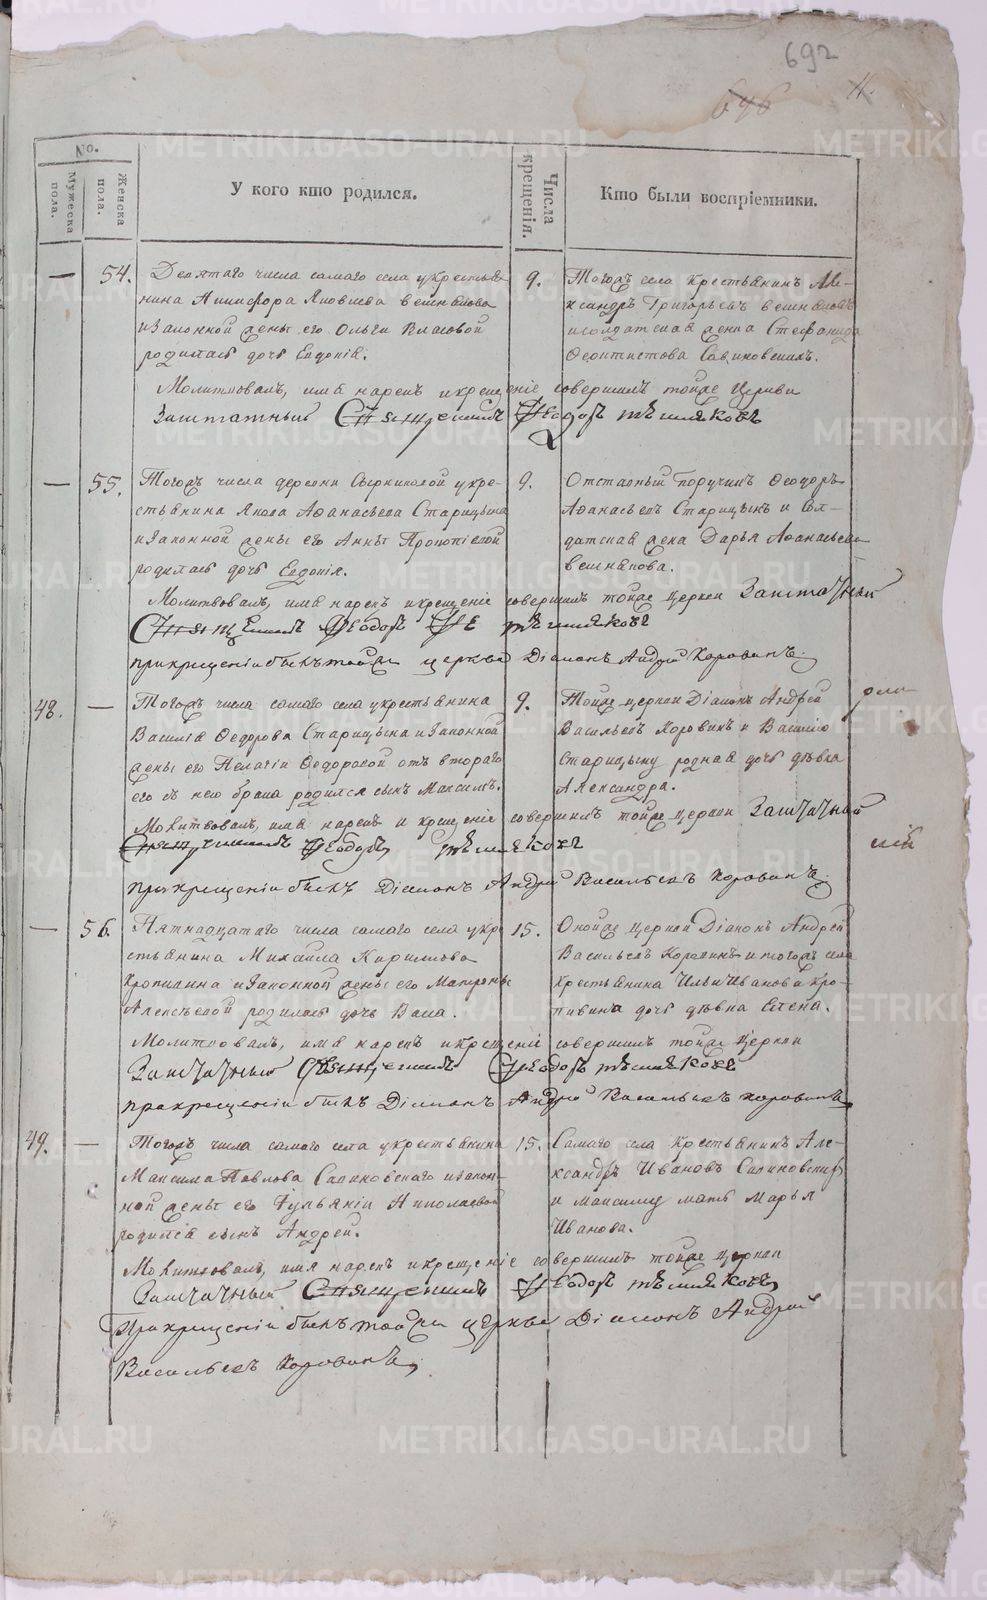 692
696
11.
No.
Мужеска пола.
Женска пола.
У кого кто родился.
Числа крещенія.
Кто были воспріемники.
— 54. Десятаго числа самаго села у крестья-
нина Никифора Яковлева Вешнякова
и законной жены его Ольги Власовой
родилась дочь Евдокія.
9.
Тогожъ села крестьянинъ Але-
ксандръ Григорьевъ Вешняковъ
и солдатская жена Стефанида
Феоктистова Савиновскихъ.
Молитвовалъ, имя нарекъ и крещеніе совершилъ тойже Церкви
Заштатный Священникъ Феодоръ Тѣшляковъ
— 55. Тогожъ числа деревни у кре-
стьянина Якова Афанасьева Старицына
и законной жены его Анны Прокопіевой
родилась дочь Евдокія.
9.
Отставный Поручикъ Феодоръ
Афанасьевъ Старицынъ и Сол-
датская жена Дарья Афанасьева
Вешнякова.
Молитвовалъ, имя нарекъ и крещеніе совершилъ тойже церкви Заштатный
Священникъ Феодоръ Тѣшляковъ
при крещеніи былъ тойже церкви Діаконъ Андрей Коровинъ.
48. — Тогожъ числа самаго села у крестьянина
Василія Федорова Старицына и законной
жены его Пелагіи Федоровой отъ втораго
его съ нею брака родился сынъ Максимъ.
9.
Тойже церкви Діаконъ Андрей
Васильевъ Коровинъ и Василію
Старицыну родная дочь дѣвка
Александра.
Молитвовалъ, имя нарекъ и крещеніе совершилъ тойже церкви Заштатный
Священникъ Феодоръ Тѣшляковъ
при крещеніи былъ Діаконъ Андрей Васильевъ Коровинъ.
— 56. Пятнадцатаго числа самаго села у кре-
стьянина Михаила Кирилова
Кропивина и законной жены его Матроны
Алексѣевой родилась дочь Васса.
15.
Оной же церкви Діаконъ Андрей
Васильевъ Коровинъ и тогожъ села
крестьянина Ильи Иванова Кро-
пивина дочь дѣвка Елена.
Молитвовалъ, имя нарекъ и крещеніе совершилъ тойже Церкви
Заштатный Священникъ Феодоръ Тѣшляковъ
при крещеніи былъ Діаконъ Андрей Васильевъ Коровинъ
49. — Тогожъ числа самаго села у крестьянина
Максима Павлова Савиновскаго и закон-
ной жены его Іульяніи Николаевой
родился сынъ Андрей.
15.
Самаго села крестьянинъ Але-
ксандръ Ивановъ Савиновскихъ
и Максиму мать Марья
Иванова.
Молитвовалъ, имя нарекъ и крещеніе совершилъ тойже церкви
Заштатный Священникъ Феодоръ Тѣшляковъ
При крещеніи былъ тойже церкви Діаконъ Андрей
Васильевъ Коровинъ
METRIKI.GASO-URAL.RU